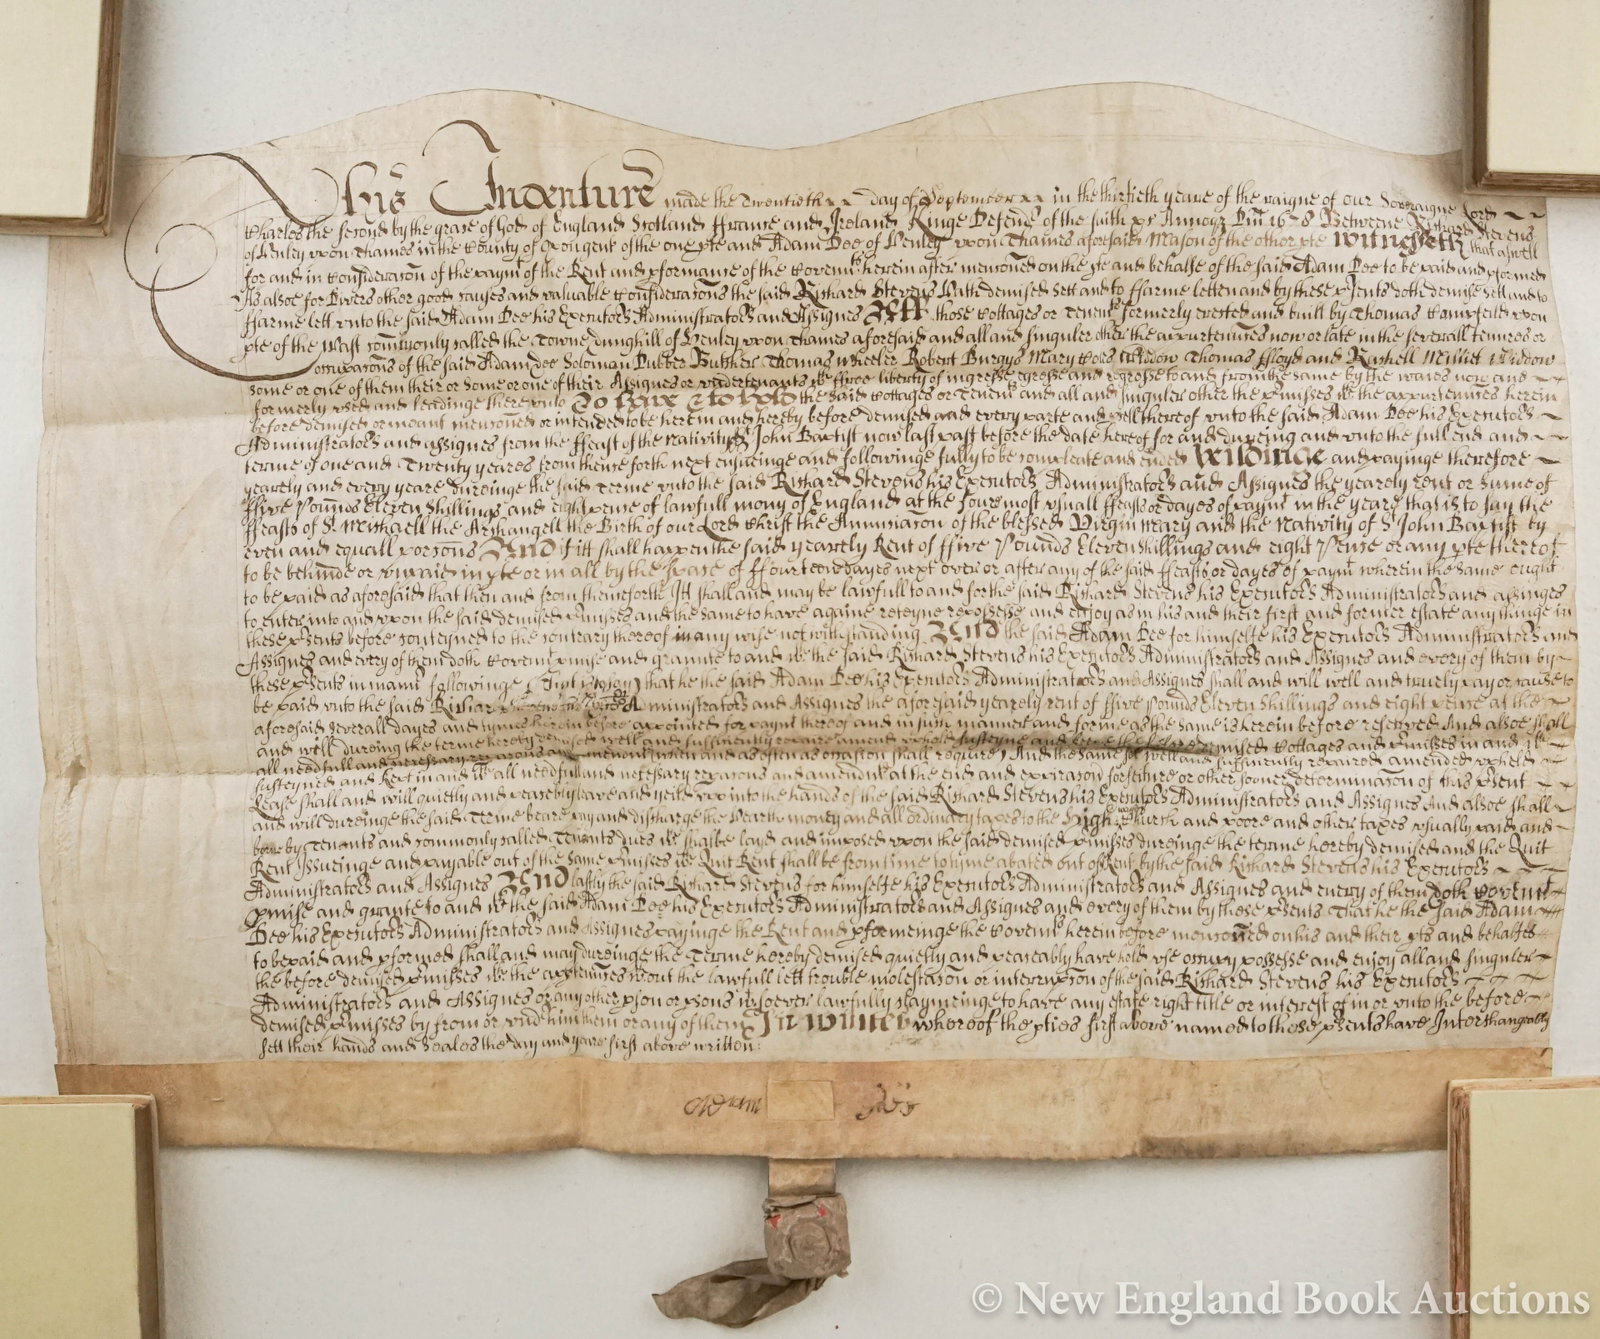 This Indenture made the Twentieth day of September in the thirtieth yeare of the raigne of our Soveraigne Lord
Charles the second by the grace of God of England Scotland ffrance and Ireland Kinge Defendr of the faith &c Annoqz Dni 1678 Betweene Richard Stevens
of Henley upon Thames in the County of Oxon gent of the one pte and Adam Dee of Henley upon Thames aforesaid Mason of the other pte Witnesseth that aswell
for and in Consideracon of the paymt of the Rent and pformance of the Covents herein after menconed on the pte and behalfe of the said Adam Dee to be paid and pformed
As alsoe for Divers other good causes and valuable Consideracons the said Richard Stevens Hath demised sett and to ffarme letten and by these psents doth demise sett and to
ffarme lett unto the said Adam Dee his Executors Administrators and Assignes All those Cottages or Tenemts formerly erected and built by Thomas upon
pte of the Wast comonly called the Towne dunghill of Henley upon Thames aforesaid and all and singuler other the appurtennces now or late in the severall tenures or
occupacons of the said Adam Dee Soloman Butcher Thomas Wheeler Robert Burgys Mary Widdow Thomas ffloyd and Rachell Widdow
some or one of them their or some or one of their Assignes or undertenants wth ffree liberty of ingresse egresse and regresse to and from the same by the waies now and
formerly used and leadinge thereunto To have & to hold the said Cottages or Tenemts and all and singuler other the pmisses wth the appurtennces herein
before demised or meant menconed or intended to be herein and hereby before demised and every parte and pcell thereof unto the said Adam Dee his Executors
Administrators and assignes from the ffeast of the Nativity of St John Baptist now last past before the date hereof for and dureing and unto the full end and
terme of one and Twenty yeares from thence forth next ensueinge and followinge fully to be compleate and ended Yeildinge and payinge therefore
yearely and every yeare dureinge the said Terme unto the said Richard Stevens his Executors Administrators and Assignes the yearely rent or summe of
ffive Pounds Eleven Shillings and eight pence of lawfull mony of England at the foure most usuall ffeasts or dayes of paymt in the yeare that is to say the
ffeasts of St Michaell the Archangell the Birth of our Lord Christ the Annunciacon of the blessed Virgin Mary and the Nativity of St John Baptist by
even and equall porcons And if itt shall happen the said yearely Rent of ffive Pounds Eleven Shillings and eight Pence or any pte thereof
to be behinde or unpaid in pte or in all by the space of ffourteene dayes next over or after any of the said ffeasts or dayes of paymt wherein the same ought
to be paid as aforesaid that then and from thenceforth Itt shall and may be lawfull to and for the said Richard Stevens his Executors Administrators and assignes
to enter into and upon the said demised pmisses and the same to have againe reteyne repossesse and enjoy as in his and their first and former estate any thinge in
these psents before conteyned to the contrary thereof in any wise notwithstanding And the said Adam Dee for himselfe his Executors Administrators and
Assignes and every of them doth Covent pmise and graunte to and wth the said Richard Stevens his Executors Administrators and Assignes and every of them by
these psents in manr followinge (That is to say) that he the said Adam Dee his Executors Administrators and Assignes shall and will well and truely pay or cause to
be paid unto the said Richard Administrators and Assignes the aforesaid yearely rent of ffive Pounds Eleven Shillings and eight pence at the
aforesaid severall dayes and tymes herein before appointed for paymt thereof and in such manner and forme as the same is herein before reserved And alsoe shall
and will dureing the terme hereby demised well and sufficiently repaire amend uphold susteyne and keepe the before demised Cottages and pmisses in and wth
all needfull and necessary when and as often as occasion shall require And the same soe well and sufficiently repaired amended upheld
susteyned and kept in and wth all needfull and necessary repacons and amendmts at the end and expiracon forfeiture or other sooner determinacon of this psent
Lease shall and will quietly and peaceably leave and yeild upp into the hands of the said Richard Stevens his Executors Administrators and Assignes And alsoe shall
and will dureinge the said Terme beare pay and discharge the Hearth money and all ordinary taxes to the high wayes Church and poore and other taxes usually paid and
borne by Tenants and commonly called Tenants dues wch shalbe layd and imposed upon the said demised pmisses dureinge the terme hereby demised and the Quit
Rent Issueinge and payable out of the same pmisses wch Quit Rent shall be from time to tyme abated out of Rent by the said Richard Stevens his Executors
Administrators and Assignes And lastly the said Richard Stevens for himselfe his Executors Administrators and Assignes and every of them doth Covent
pmise and graunte to and wth the said Adam Dee his Executors Administrators and Assignes and every of them by these psents That he the said Adam
Dee his Executors Administrators and Assignes payinge the Rent and pformeinge the Covents herein before menconed on his and their pts and behalfes
to be paid and pformed shall and may dureinge the Terme hereby demised quietly and peaceably have hold use occupy possesse and enjoy all and singuler
the before demised pmisses wth the apptennces wthout the lawfull lett trouble molestacon or interrupcon of the said Richard Stevens his Executors
Administrators and Assignes or any other pson or psons wtsoever lawfully claymeinge to have any estate right title or interest of in or unto the before
demised pmisses by from or undr him them or any of them In witnes whereof the pties first above named to these psents have Interchangeably
sett their hands and Seales the day and yeare first above written:
Adam Dee
© New England Book Auctions